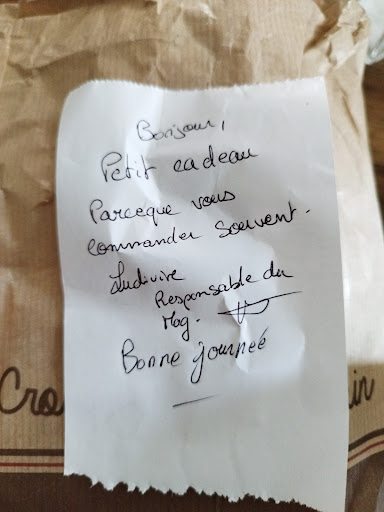 Bonjour,
Petit cadeau
Parceque vous
commander souvent.
Ludivine
Responsable du
Mag.
Bonne journeé
Cro
in